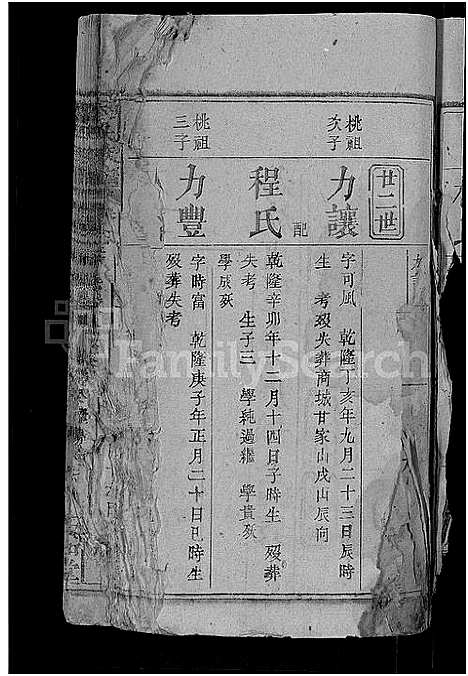 廿二世
桃祖次子
力讓
字可風 乾隆丁亥年九月二十三日辰時
生 考歿失葬商城甘家山戌山辰向
配
程氏
乾隆辛卯年十二月十四日子時生 歿葬
失考 生子三 學純過繼 學貴歿
學成歿
桃祖三子
力豐
字時富 乾隆庚子年正月二十日巳時生
歿葬失考
FamilySearch